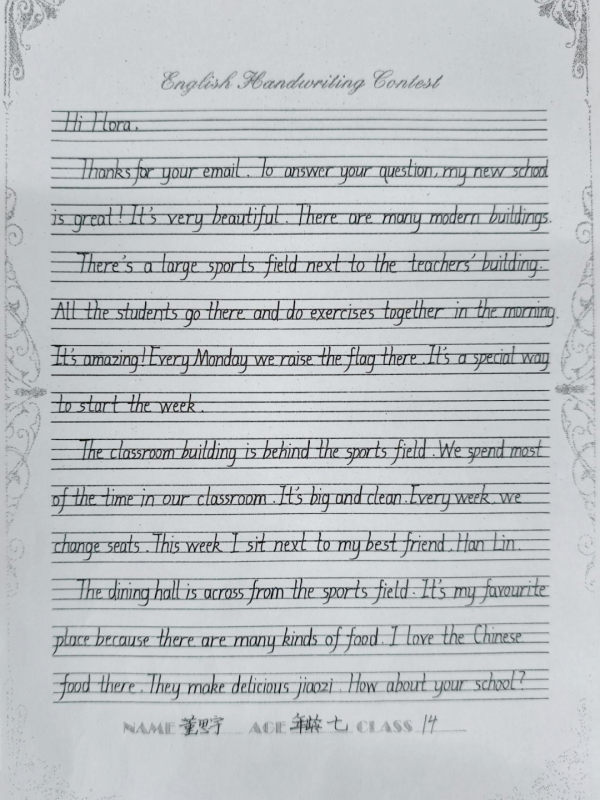 English Handwriting Contest
Hi Flora.
Thanks for your email. To answer your question, my new school
is great! It's very beautiful. There are many modern buildings.
There's a large sports field next to the teachers' building.
All the students go there and do exercises together in the morning.
It's amazing! Every Monday we raise the flag there. It's a special way
to start the week.
The classroom building is behind the sports field. We spend most
of the time in our classroom. It's big and clean. Every week, we
change seats. This week I sit next to my best friend, Han Lin.
The dining hall is across from the sports field. It's my favourite
place because there are many kinds of food. I love the Chinese
food there. They make delicious jiaozi. How about your school?
NAME 董思宇 AGE 年龄 七 CLASS 14